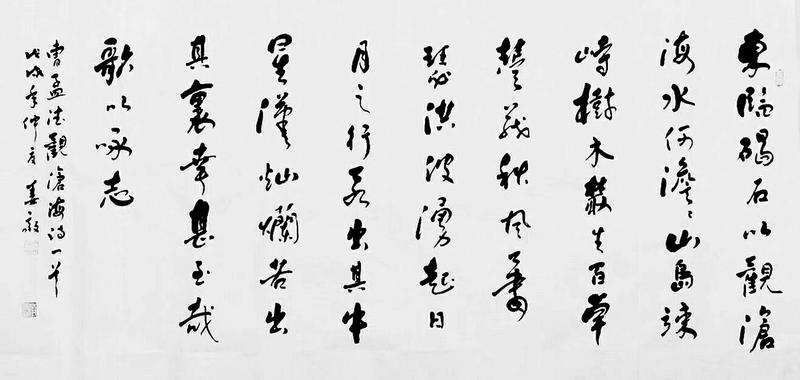 東臨碣石以觀滄
海水何澹々山島竦
峙樹木叢生百草
豐茂秋風蕭
瑟洪波湧起日
月之行若出其中
星漢灿爛若出
其裏幸甚至哉
歌以咏志
曹孟德觀滄海詩一首
戊戌年仲夏 姜